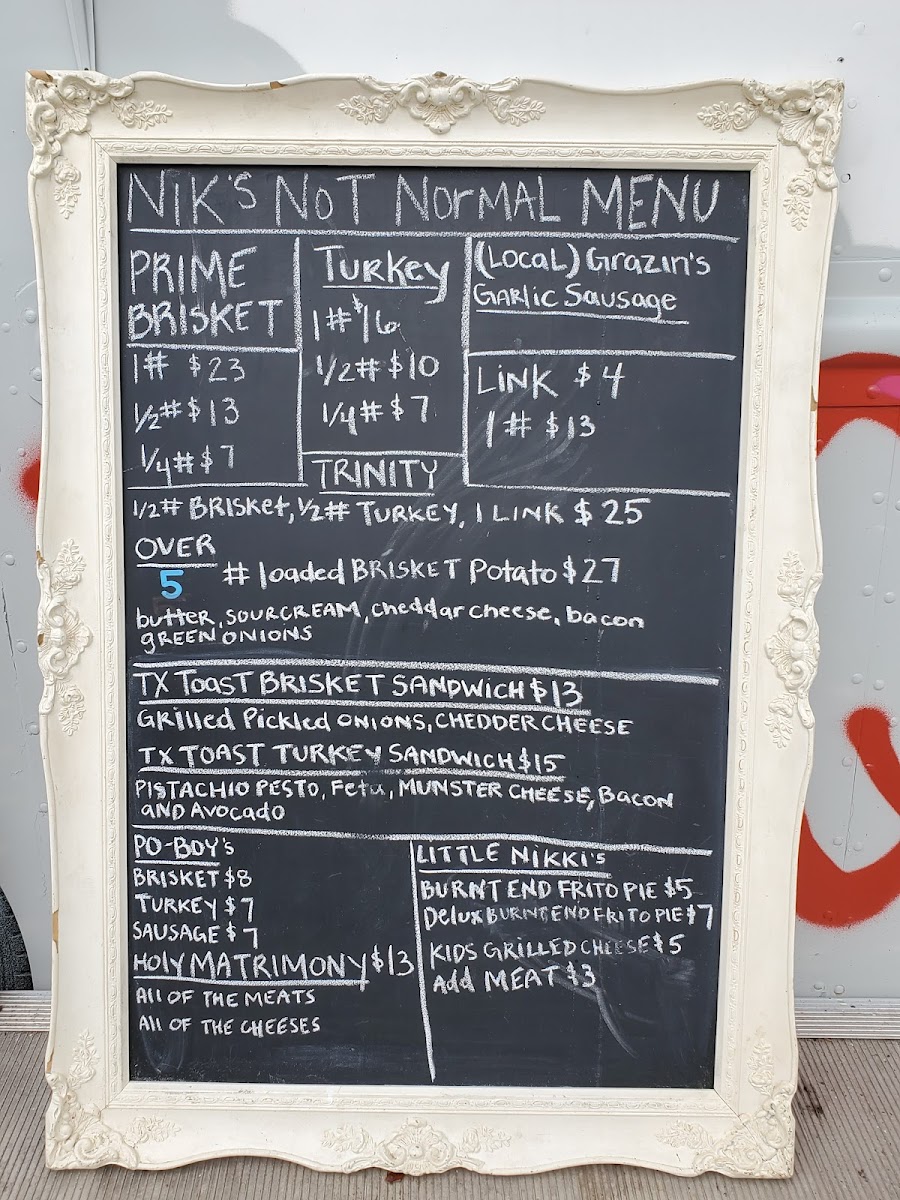 NIK'S NOT NORMAL MENU
PRIME
BRISKET
1# $23
1/2# $13
1/4# $7
Turkey
1# $16
1/2# $10
1/4# $7
(LOCAL) Grazin's
GARLIC Sausage
LINK $4
1# $13
TRINITY
1/2# BRISKET, 1/2# TURKEY, 1 LINK $25
OVER
5 # loaded BRISKET Potato $27
butter, SOURCREAM, cheddar cheese, bacon
GREEN ONIONS
TX Toast BRISKET SANDWICH $13
Grilled Pickled ONIONS, CHEDDER CHEESE
TX TOAST TURKEY SANDWICH $15
PISTACHIO PESTO, Feta, MUNSTER CHEESE, Bacon
AND Avocado
PO-BOY's
BRISKET $8
TURKEY $7
SAUSAGE $7
HOLY MATRIMONY $13
All OF THE MEATS
All OF THE CHEESES
LITTLE NIKKI's
BURNT END FRITO PIE $5
Delux BURNT END FRITO PIE $7
KIDS GRILLED CHEESE $5
Add MEAT $3